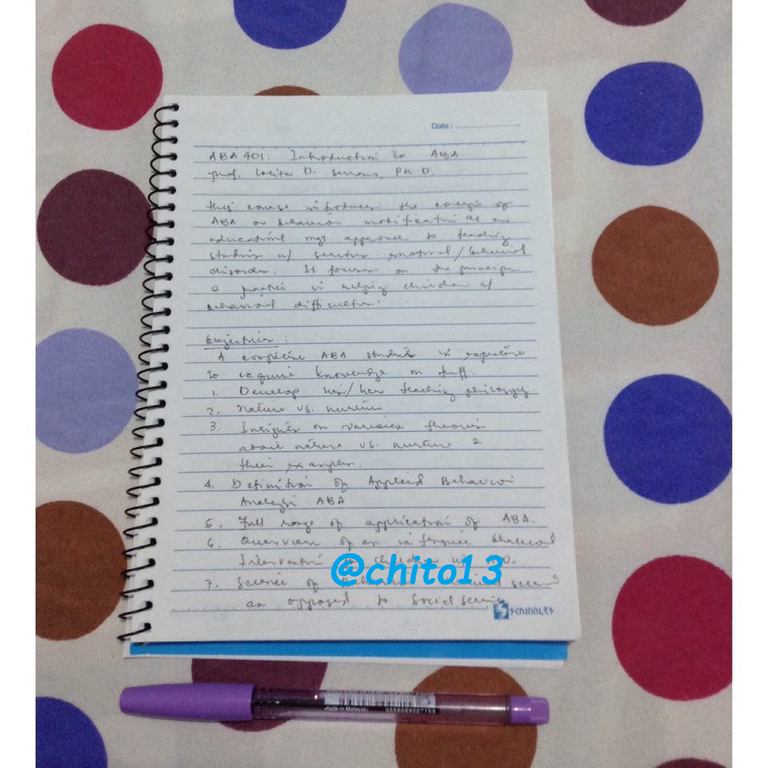 Date :
ABA 401: Introduction to ABA
Prof. Lolita D. Serrano, PH.D.
This course introduces the concepts of
ABA or behavior modification as an
educational mgt approach to teaching
students w/ serious emotional/behavioral
disorder. It focuses on the principle
& practice in helping children w/
behavioral difficulties.
Objectives :
A complete ABA students is expected
to acquire knowledge on ff.
1. Develop his/her teaching philosophy.
2. Nature vs. nurture
3. Insights on various theories
about nature vs. nurture &
their examples.
4. Definition of Applied Behavior
Analysis ABA
5. Full range of application of ABA.
6. Overview of an Behavioral
Intervention children w/
7. Science of
as opposed to social science
@chito13
SCRIBBLES
Made in Malaysia